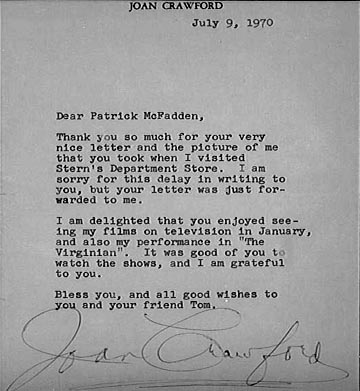 JOAN CRAWFORD
July 9, 1970
Dear Patrick McFadden,
Thank you so much for your very
nice letter and the picture of me
that you took when I visited
Stern's Department Store. I am
sorry for this delay in writing to
you, but your letter was just for-
warded to me.
I am delighted that you enjoyed see-
ing my films on television in January,
and also my performance in "The
Virginian". It was good of you to
watch the shows, and I am grateful
to you.
Bless you, and all good wishes to
you and your friend Tom.
Joan Crawford